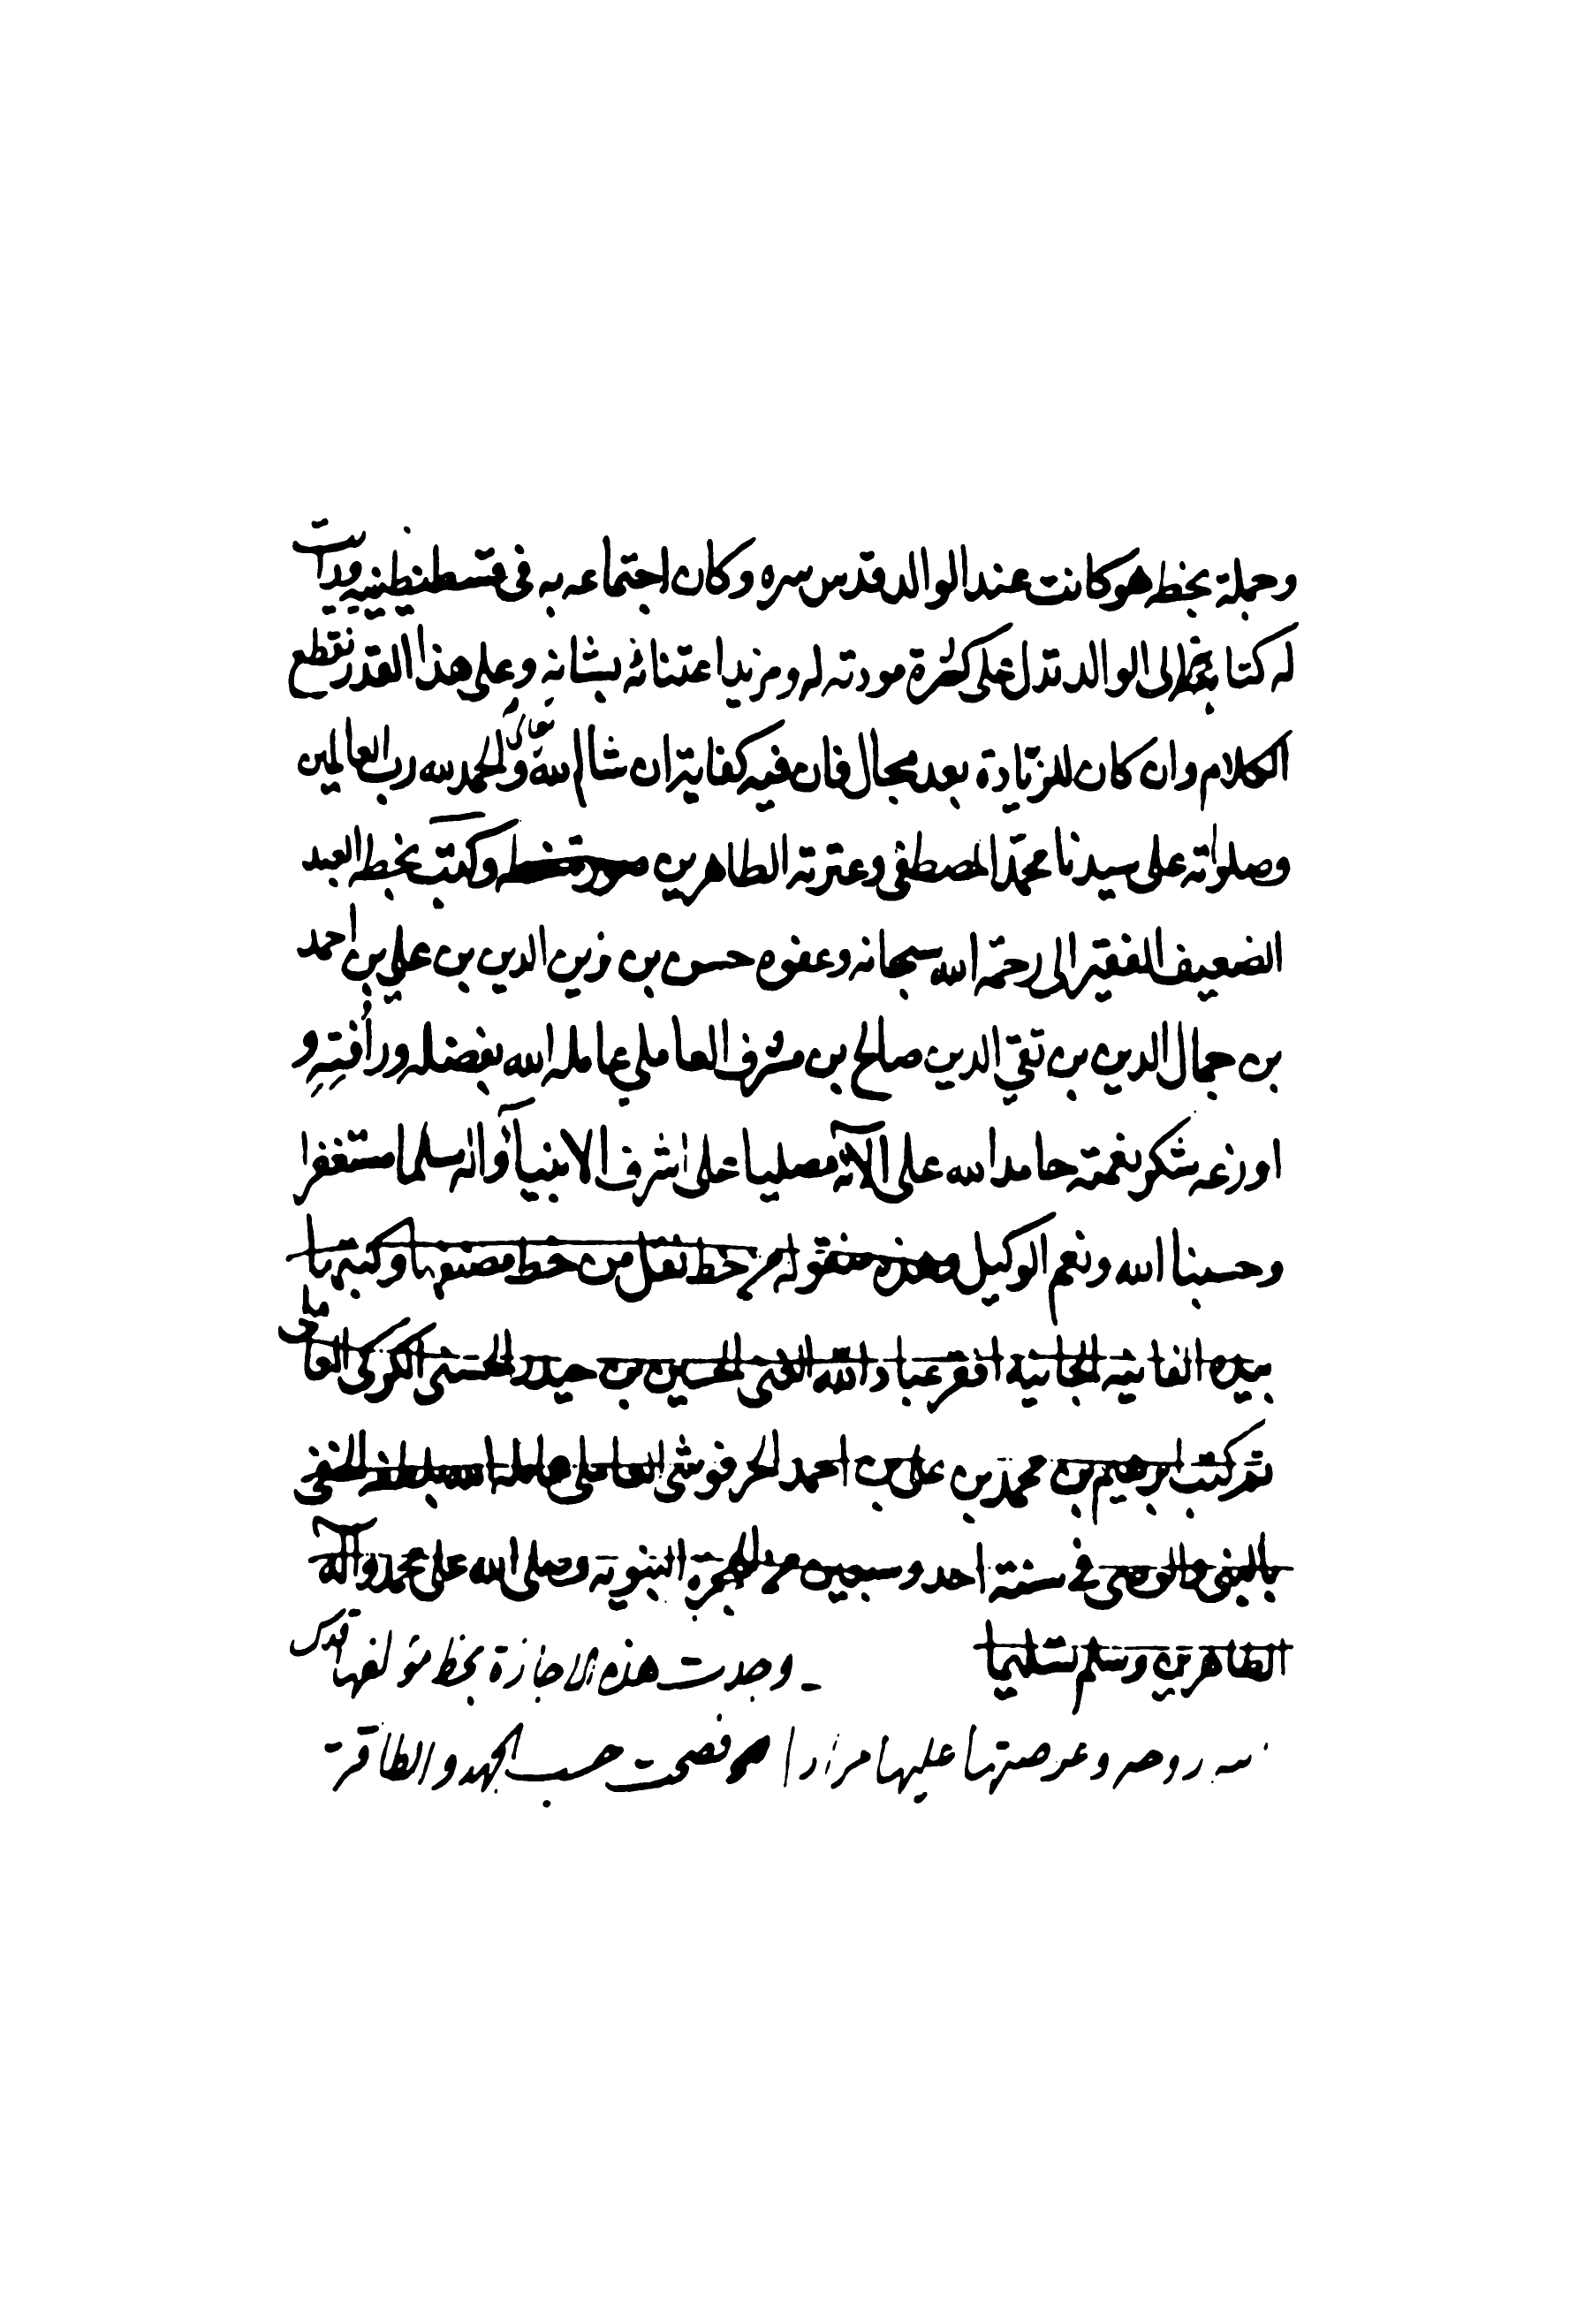 وجملة بخطه هو كانت عند الوالد قدس سره وكان اجتماعه به فى قسطنطينية ورأيت
له كتابة بخطه الى الوالد تدل على كثرة مودته له ومزيد اعتنائه بشانه وعلى هذا القدر نقطع
الكلام وان كان للزيادة بعد مجال فان فيه كفاية ان شا الله تعالى والحمد لله رب العالمين
وصلواته على سيدنا محمد المصطفى وعترته الطاهرين وكتب بخطه العبد
الضعيف الفقير الى رحمة الله سبحانه وعفوه حسن بن زين الدين بن علي بن احمد
بن جمال الدين بن تقي الدين صالح بن مشرف العاملي عامله الله بفضله ورأفته و
اوزعه شكر نعمته حامدا لله على آلآئه مصليا على اشرف الانبيآء وآله مسلما مستغفرا
وحسبنا الله ونعم الوكيل منقولة من خط نقل من خط مصنفها وكتبتها
بيده الفانية الجانية افقر عباد الله الغنى الحسين بن حيدر الحسينى الكركى العاملى
ثم كتب ابرهيم بن محمد بن على بن احمد الحرفوشى العاملى عامله الله بلطفه الخفى
بالنبى والوصى فى سنة احد وسبعين من الهجرة النبوية وصلى الله على محمد وآله
الطاهرين وسلم تسليما ـ وجدت هذه الاجازة بخط مؤلفها قدس
الله روحه وعرضتها عليها مرارا فصحت حسب الجهد والطاقة